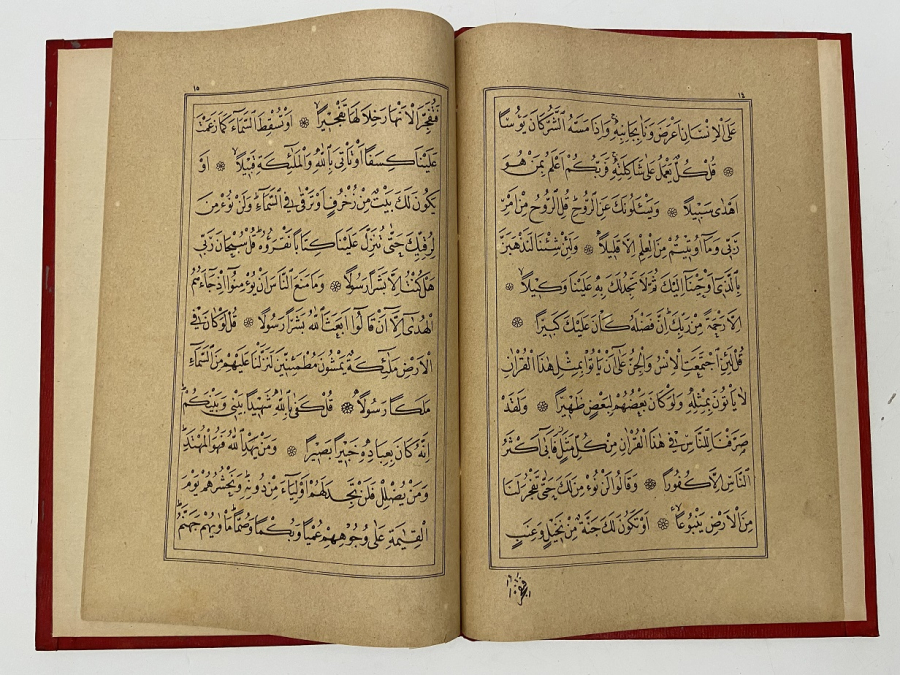 ١٤
عَلَى الْاِنْسَانِ اَعْرَضَ وَنَاٰ بِجَانِبِهٖ وَاِذَا مَسَّهُ الشَّرُّ كَانَ يَؤُسًا
قُلْ كُلٌّ يَعْمَلُ عَلٰى شَاكِلَتِهٖ فَرَبُّكُمْ اَعْلَمُ بِمَنْ هُوَ
اَهْدٰى سَبِيلًا وَيَسْـَٔلُونَكَ عَنِ الرُّوحِ قُلِ الرُّوحُ مِنْ اَمْرِ
رَبّٖى وَمَا اُو۫تٖيتُمْ مِنَ الْعِلْمِ اِلَّا قَلٖيلًا وَلَئِنْ شِئْنَا لَنَذْهَبَنَّ
بِالَّذٖى اَوْحَيْنَا اِلَيْكَ ثُمَّ لَا تَجِدُ لَكَ بِهٖ عَلَيْنَا وَكٖيلًا
اِلَّا رَحْمَةً مِنْ رَبِّكَ اِنَّ فَضْلَهُ كَانَ عَلَيْكَ كَبٖيرًا
قُلْ لَئِنِ اجْتَمَعَتِ الْاِنْسُ وَالْجِنُّ عَلٰى اَنْ يَاْتُوا بِمِثْلِ هٰذَا الْقُرْاٰنِ
لَا يَاْتُونَ بِمِثْلِهٖ وَلَوْ كَانَ بَعْضُهُمْ لِبَعْضٍ ظَهٖيرًا وَلَقَدْ
صَرَّفْنَا لِلنَّاسِ فٖى هٰذَا الْقُرْاٰنِ مِنْ كُلِّ مَثَلٍ فَاَبٰى اَكْثَرُ
النَّاسِ اِلَّا كُفُورًا وَقَالُوا لَنْ نُؤْمِنَ لَكَ حَتّٰى تَفْجُرَ لَنَا
مِنَ الْاَرْضِ يَنْبُوعًا اَوْ تَكُونَ لَكَ جَنَّةٌ مِنْ نَخٖيلٍ وَعِنَبٍ
فتفجر
١٥
فَتُفَجِّرَ الْاَنْهَارَ خِلَالَهَا تَفْجٖيرًا اَوْ تُسْقِطَ السَّمَاءَ كَمَا زَعَمْتَ
عَلَيْنَا كِسَفًا اَوْ تَاْتِىَ بِاللّٰهِ وَالْمَلٰئِكَةِ قَبٖيلًا اَوْ
يَكُونَ لَكَ بَيْتٌ مِنْ زُخْرُفٍ اَوْ تَرْقٰى فِى السَّمَاءِ وَلَنْ نُؤْمِنَ
لِرُقِيِّكَ حَتّٰى تُنَزِّلَ عَلَيْنَا كِتَابًا نَقْرَؤُهُ قُلْ سُبْحَانَ رَبّٖى
هَلْ كُنْتُ اِلَّا بَشَرًا رَسُولًا وَمَا مَنَعَ النَّاسَ اَنْ يُؤْمِنُوا اِذْ جَاءَهُمُ
الْهُدٰى اِلَّا اَنْ قَالُوا اَبَعَثَ اللّٰهُ بَشَرًا رَسُولًا قُلْ لَوْ كَانَ فِى
الْاَرْضِ مَلٰئِكَةٌ يَمْشُونَ مُطْمَئِنّٖينَ لَنَزَّلْنَا عَلَيْهِمْ مِنَ السَّمَاءِ
مَلَكًا رَسُولًا قُلْ كَفٰى بِاللّٰهِ شَهٖيدًا بَيْنٖى وَبَيْنَكُمْ
اِنَّهُ كَانَ بِعِبَادِهٖ خَبٖيرًا بَصٖيرًا وَمَنْ يَهْدِ اللّٰهُ فَهُوَ الْمُهْتَدِ
وَمَنْ يُضْلِلْ فَلَنْ تَجِدَ لَهُمْ اَوْلِيَاءَ مِنْ دُونِهٖ وَنَحْشُرُهُمْ يَوْمَ
الْقِيٰمَةِ عَلٰى وُجُوهِهِمْ عُمْيًا وَبُكْمًا وَصُمًّا مَاْوٰيهُمْ جَهَنَّمُ